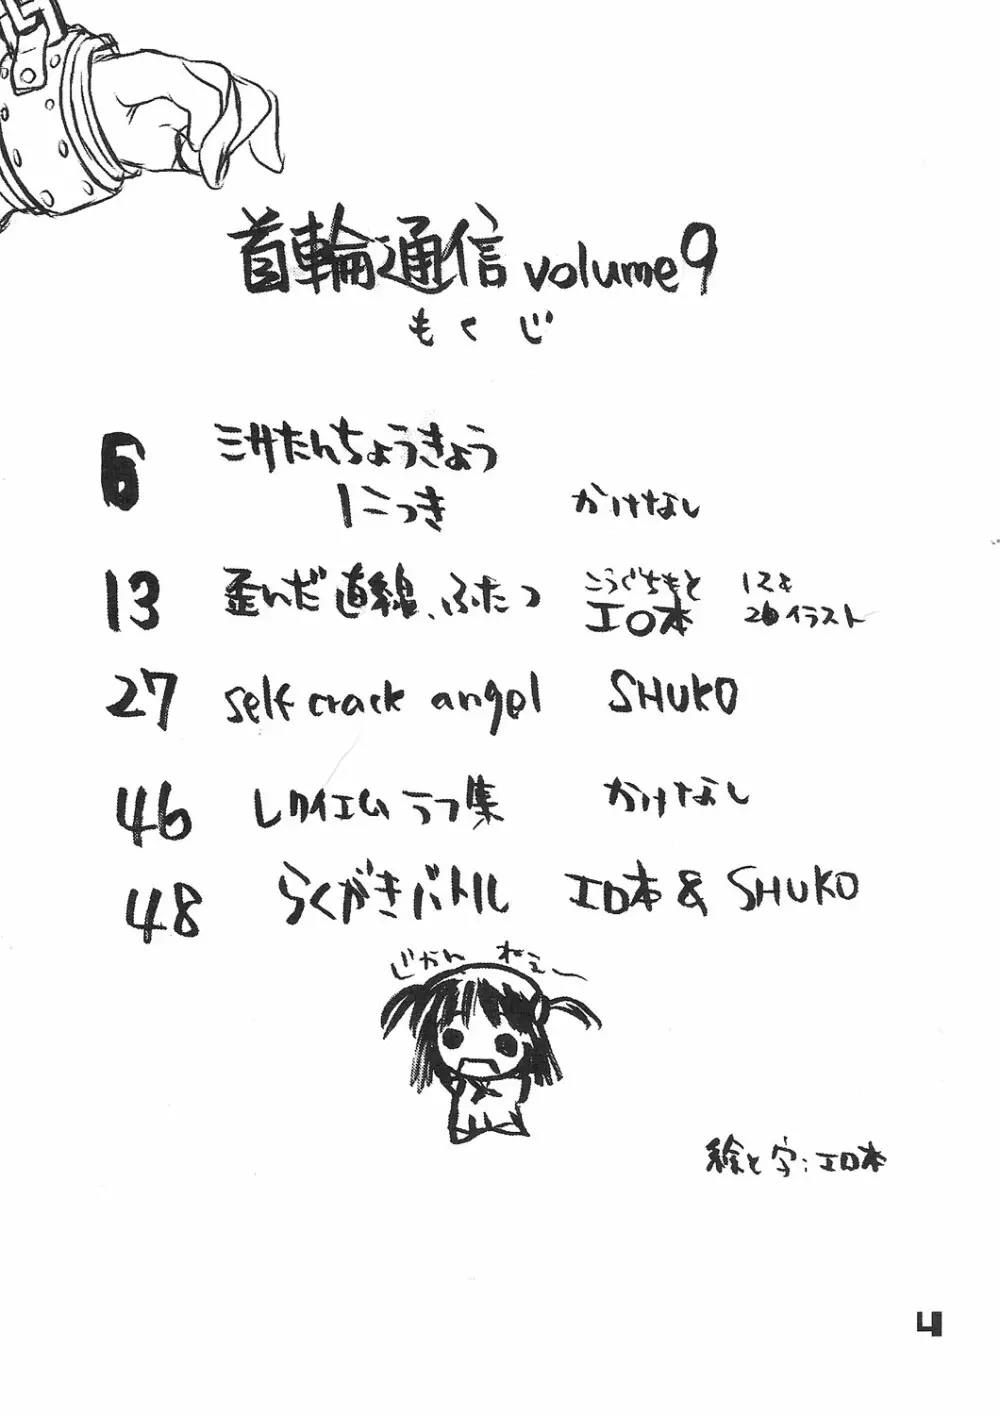 首輪通信 volume9
もくじ
6 三井たんちょうきょう
にっき かけなし
13 歪んだ直線、ふたつ こうぐちもと
エロ本 イラスト
27 self crack angel SHUKO
46 レクイエムラフ集 かけなし
48 らくがきバトル エロ本 & SHUKO
じかんねぇ〜
絵と字:エロ本
4